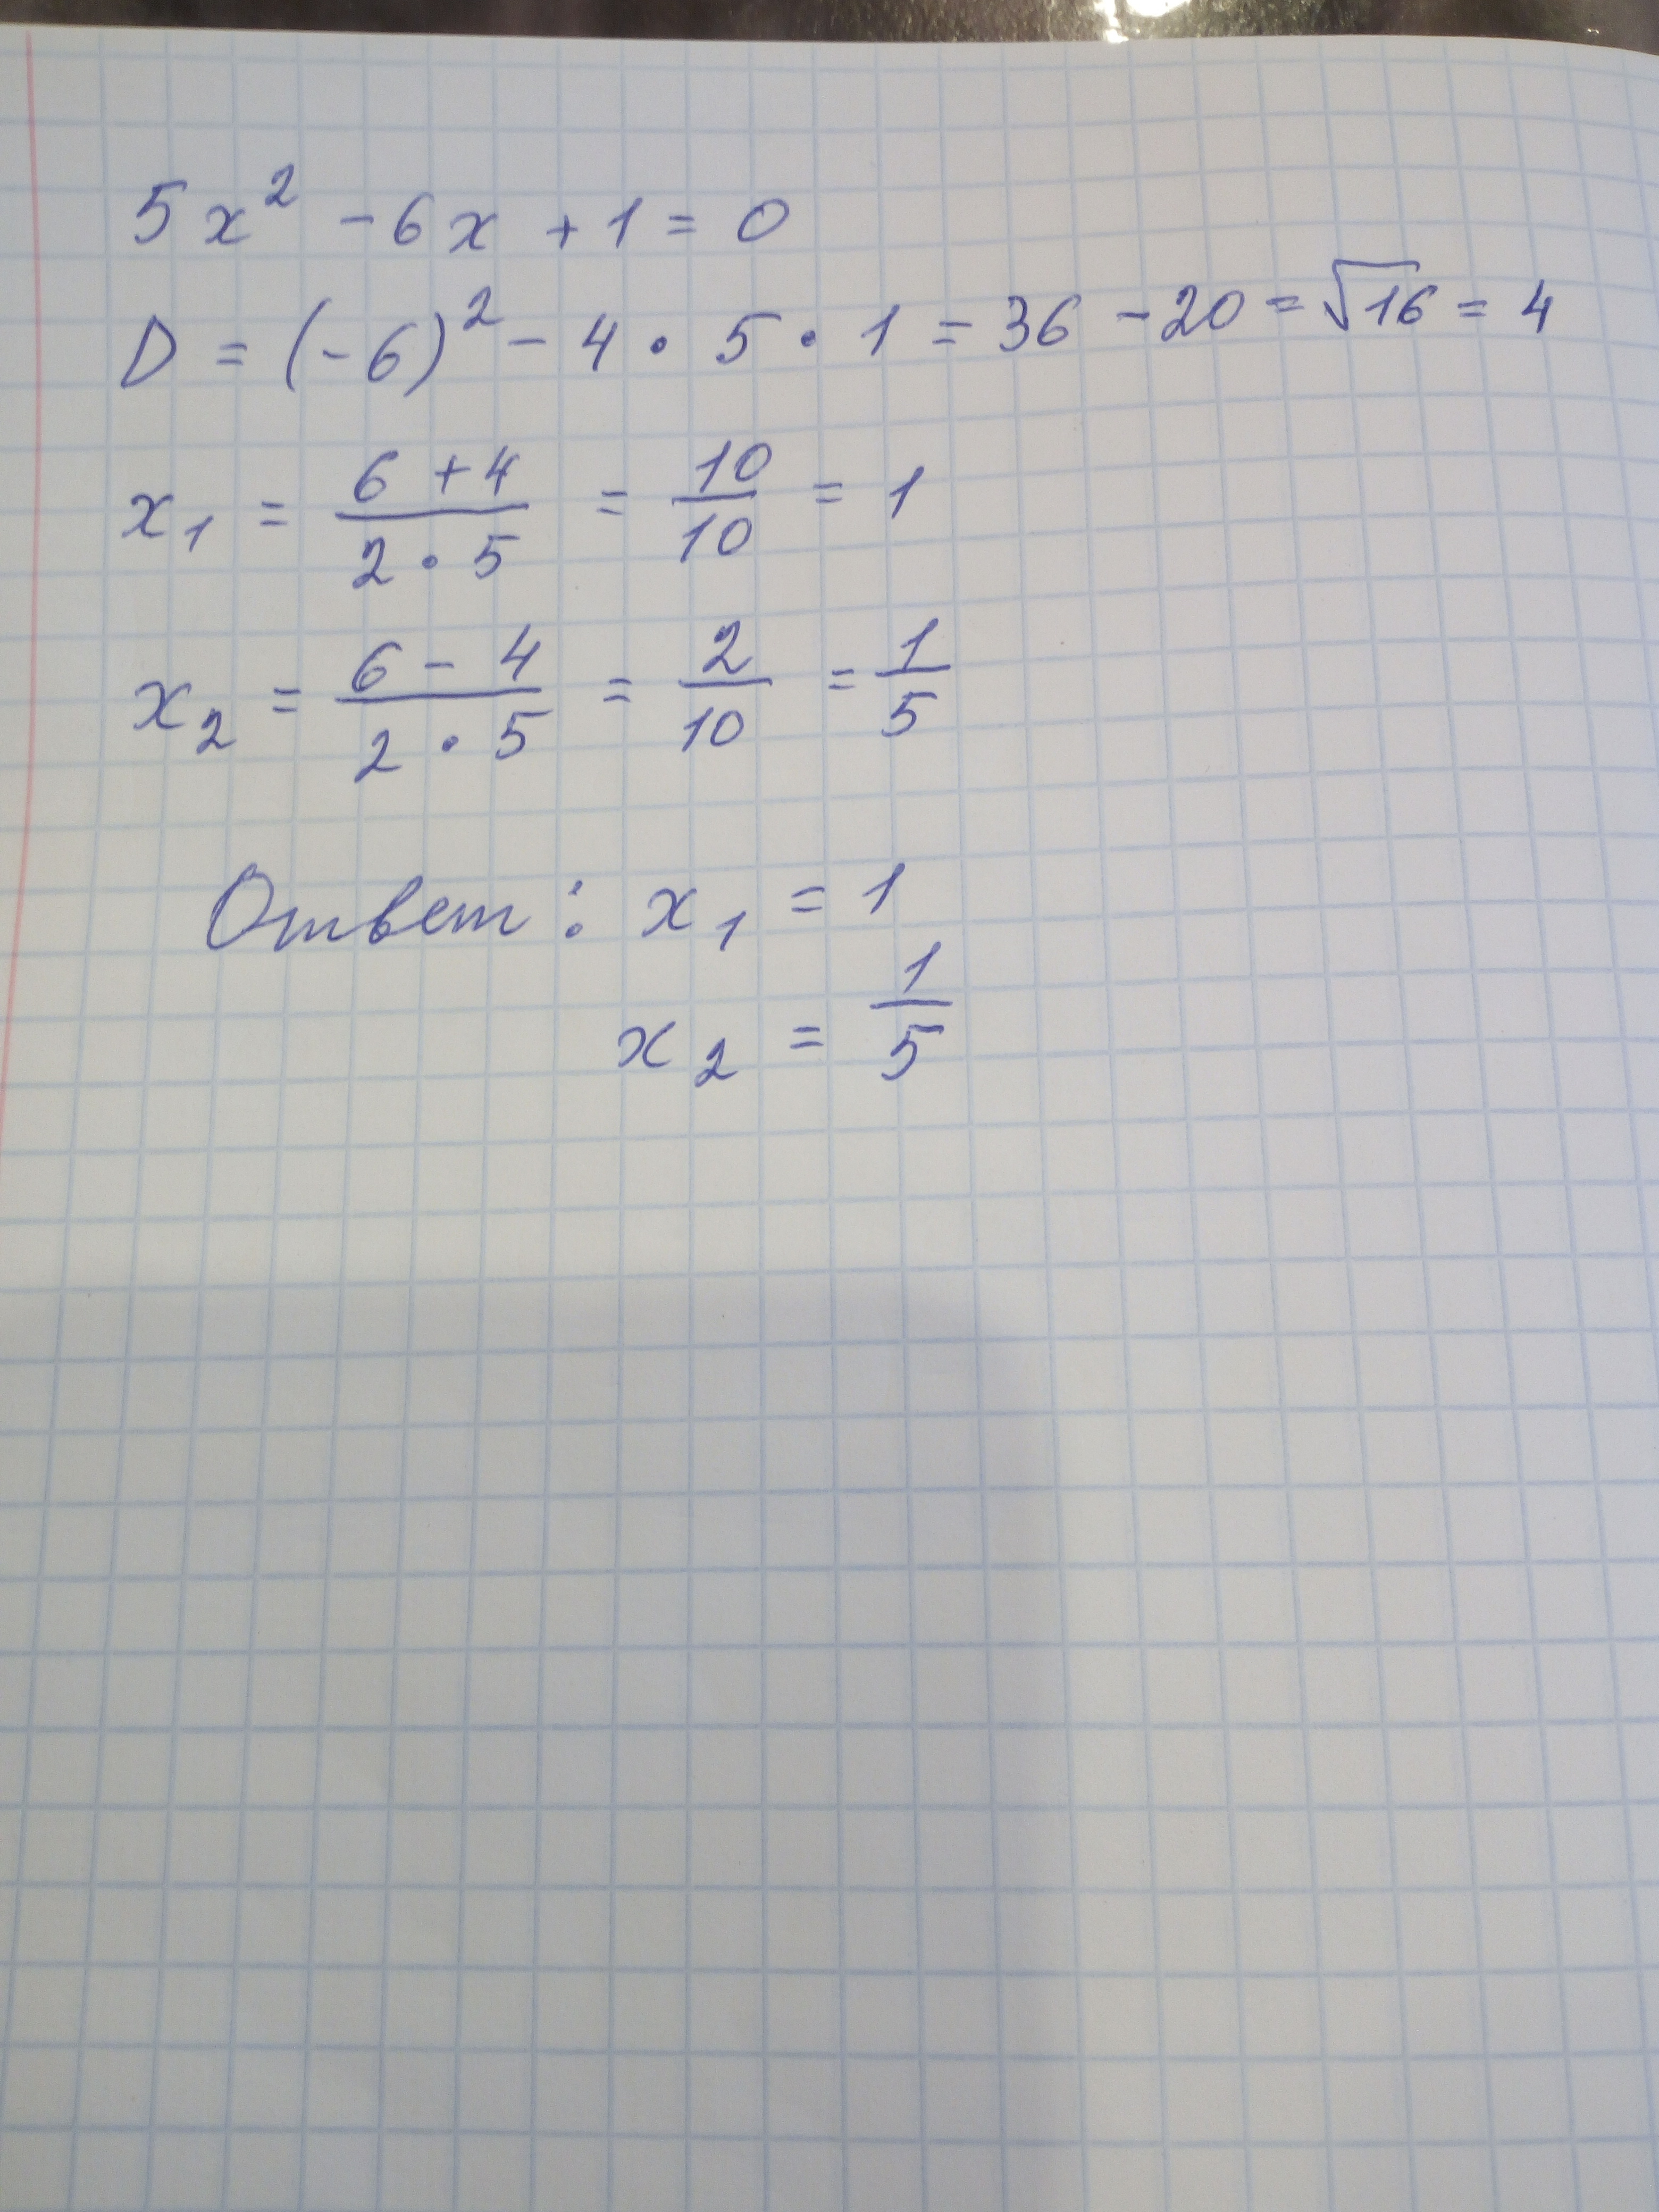 5x² - 6x + 1 = 0
D = (-6)² - 4 · 5 · 1 = 36 - 20 = √16 = 4
x₁ = (6 + 4)/(2 · 5) = 10/10 = 1
x₂ = (6 - 4)/(2 · 5) = 2/10 = 1/5
Ответ: x₁ = 1
x₂ = 1/5